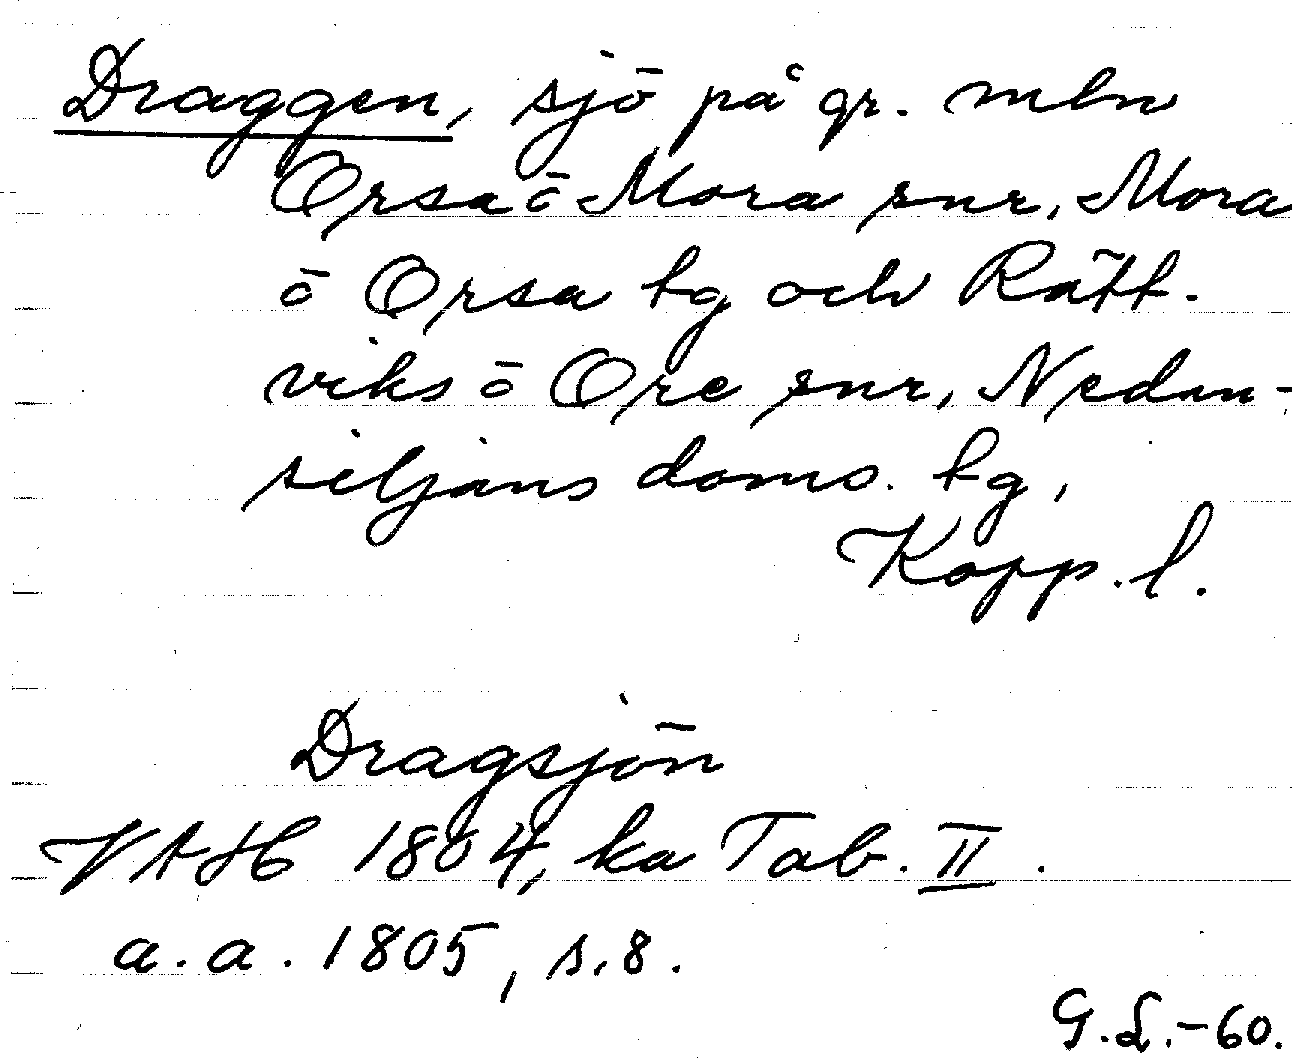 Draggen, sjö på gr. mln
Orsa o Mora snr, Mora
o Orsa tg och Rätt-
viks o Ore snr, Nedan-
siljans doms. tg,
Kopp. l.
Dragsjön
VAH 1804, ka Tab. II.
a.a. 1805, s.8.
G.L.-60.